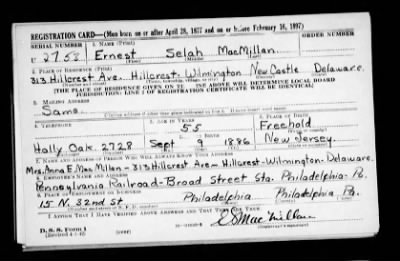 REGISTRATION CARD—(Men born on or after April 28, 1877 and on or before February 16, 1897)
SERIAL NUMBER 1. NAME (Print) ORDER NUMBER
U 2758 Ernest Selah MacMillan
(First) (Middle) (Last)
2. PLACE OF RESIDENCE (Print)
313 Hillcrest Ave. Hillcrest-Wilmington New Castle Delaware.
(Number and street) (Town, township, village, or city) (County) (State)
[THE PLACE OF RESIDENCE GIVEN ON THE LINE ABOVE WILL DETERMINE LOCAL BOARD
JURISDICTION; LINE 2 OF REGISTRATION CERTIFICATE WILL BE IDENTICAL]
3. MAILING ADDRESS
Same
[Mailing address if other than place indicated on line 2. If same insert word same]
4. TELEPHONE 5. AGE IN YEARS 6. PLACE OF BIRTH
55 Freehold
DATE OF BIRTH (Town or county)
Holly Oak 2728 Sept 9 1886 New Jersey.
7. NAME AND ADDRESS OF PERSON WHO WILL ALWAYS KNOW YOUR ADDRESS
Mrs. Anna E. MacMillan-313 Hillcrest Ave-Hillcrest-Wilmington-Delaware.
8. EMPLOYER'S NAME AND ADDRESS
Pennsylvania Railroad-Broad Street Sta. Philadelphia-Pa.
9. PLACE OF EMPLOYMENT OR BUSINESS
15 N. 32nd St. Philadelphia Philadelphia Pa.
I AFFIRM THAT I HAVE VERIFIED ABOVE ANSWERS AND THAT THEY ARE TRUE.
D. S. S. Form 1
(Revised 4-1-42) (over) ESMacMillan